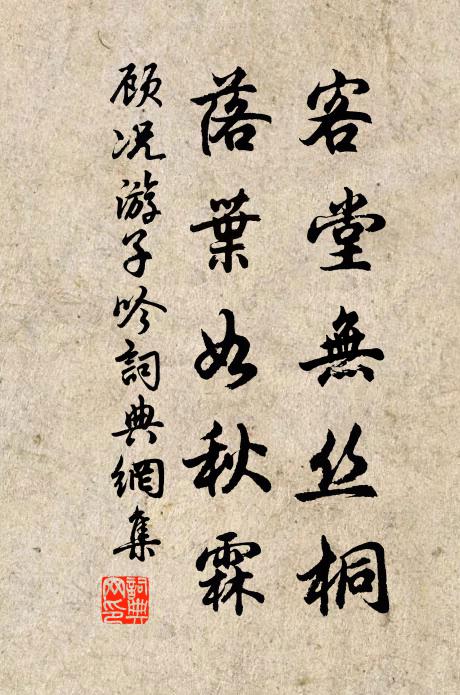 客堂無丝桐
落葉如秋霖
顾况游子吟詞典網集
詞典網印